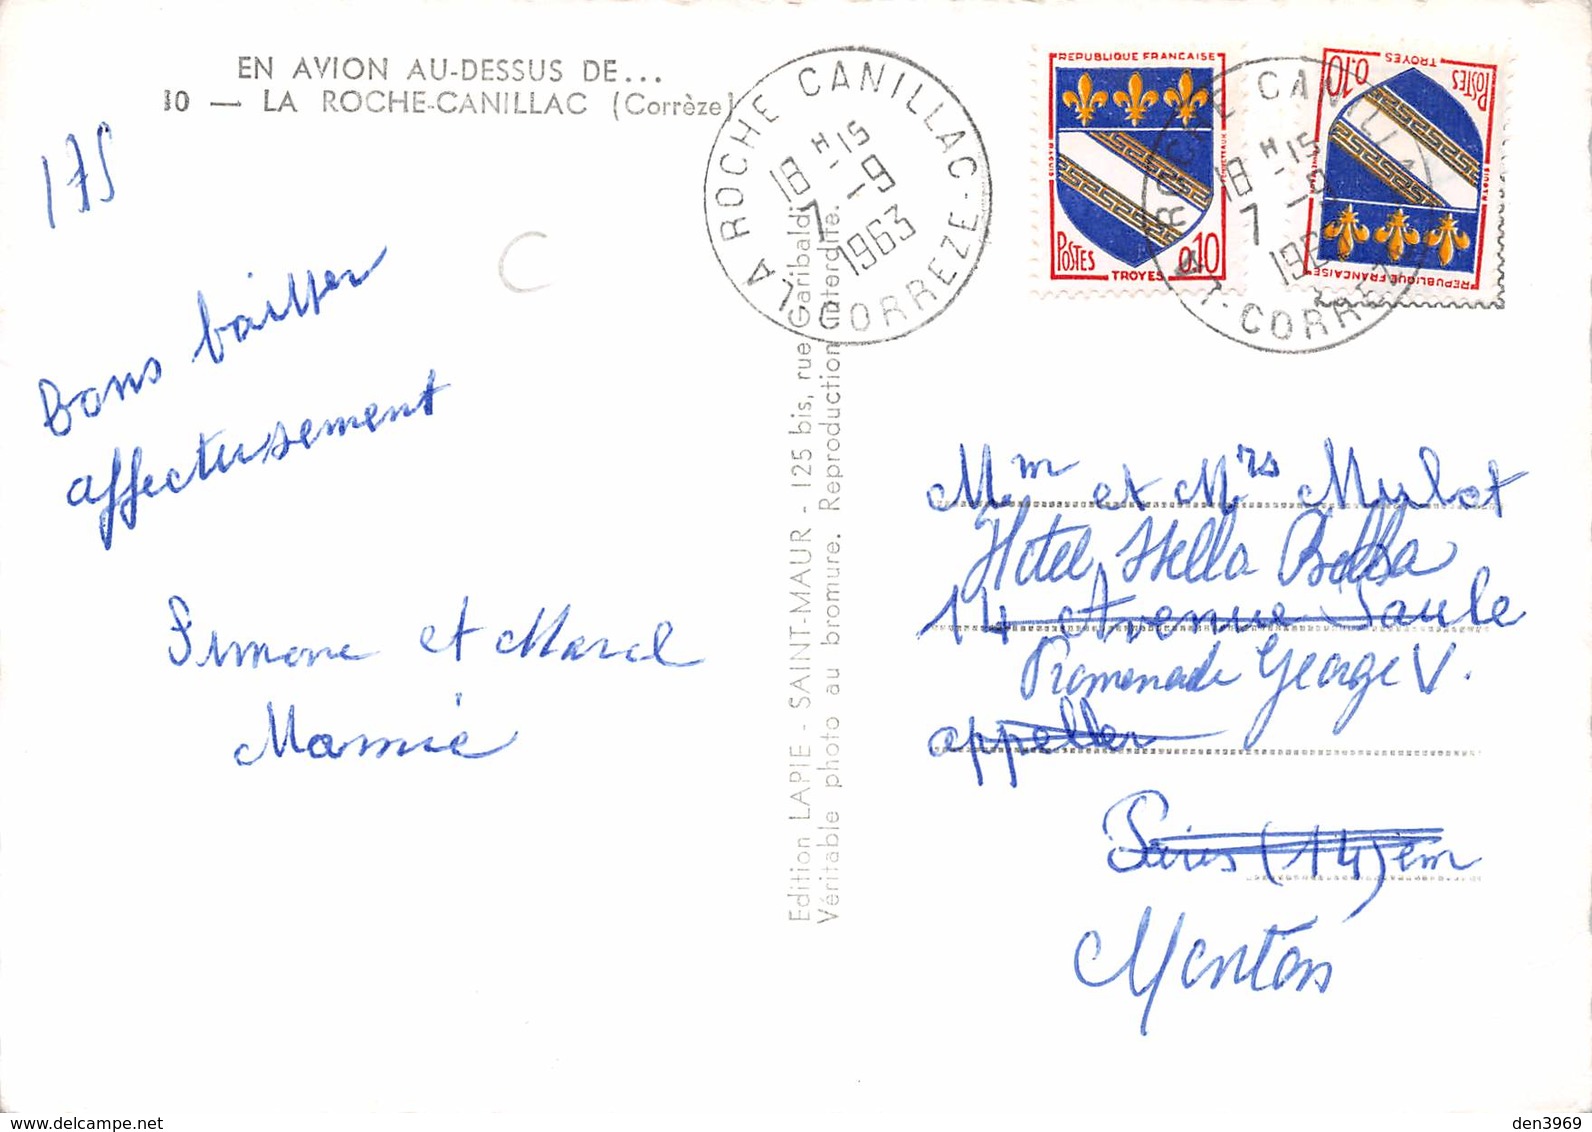 EN AVION AU-DESSUS DE...
10 — LA ROCHE-CANILLAC (Corrèze)
175
Bons baisser
affectusement
Simone et Marcel
Mamie
LA ROCHE CANILLAC - CORREZE -
18 H 15
7 - 9
1963
REPUBLIQUE FRANCAISE
POSTES
0,10
TROYES
REPUBLIQUE FRANCAISE
POSTES
0,10
TROYES
18 H 15
7 - 9
Edition LAPIE - SAINT-MAUR - 125 bis, rue Garibaldi
Véritable photo au bromure. Reproduction interdite.
Mm et Mrs Mulot
Hotel Stella Bella
14 Avenue Saule
Promenade George V.
appeller
Paires (14) em
Menton
den3969